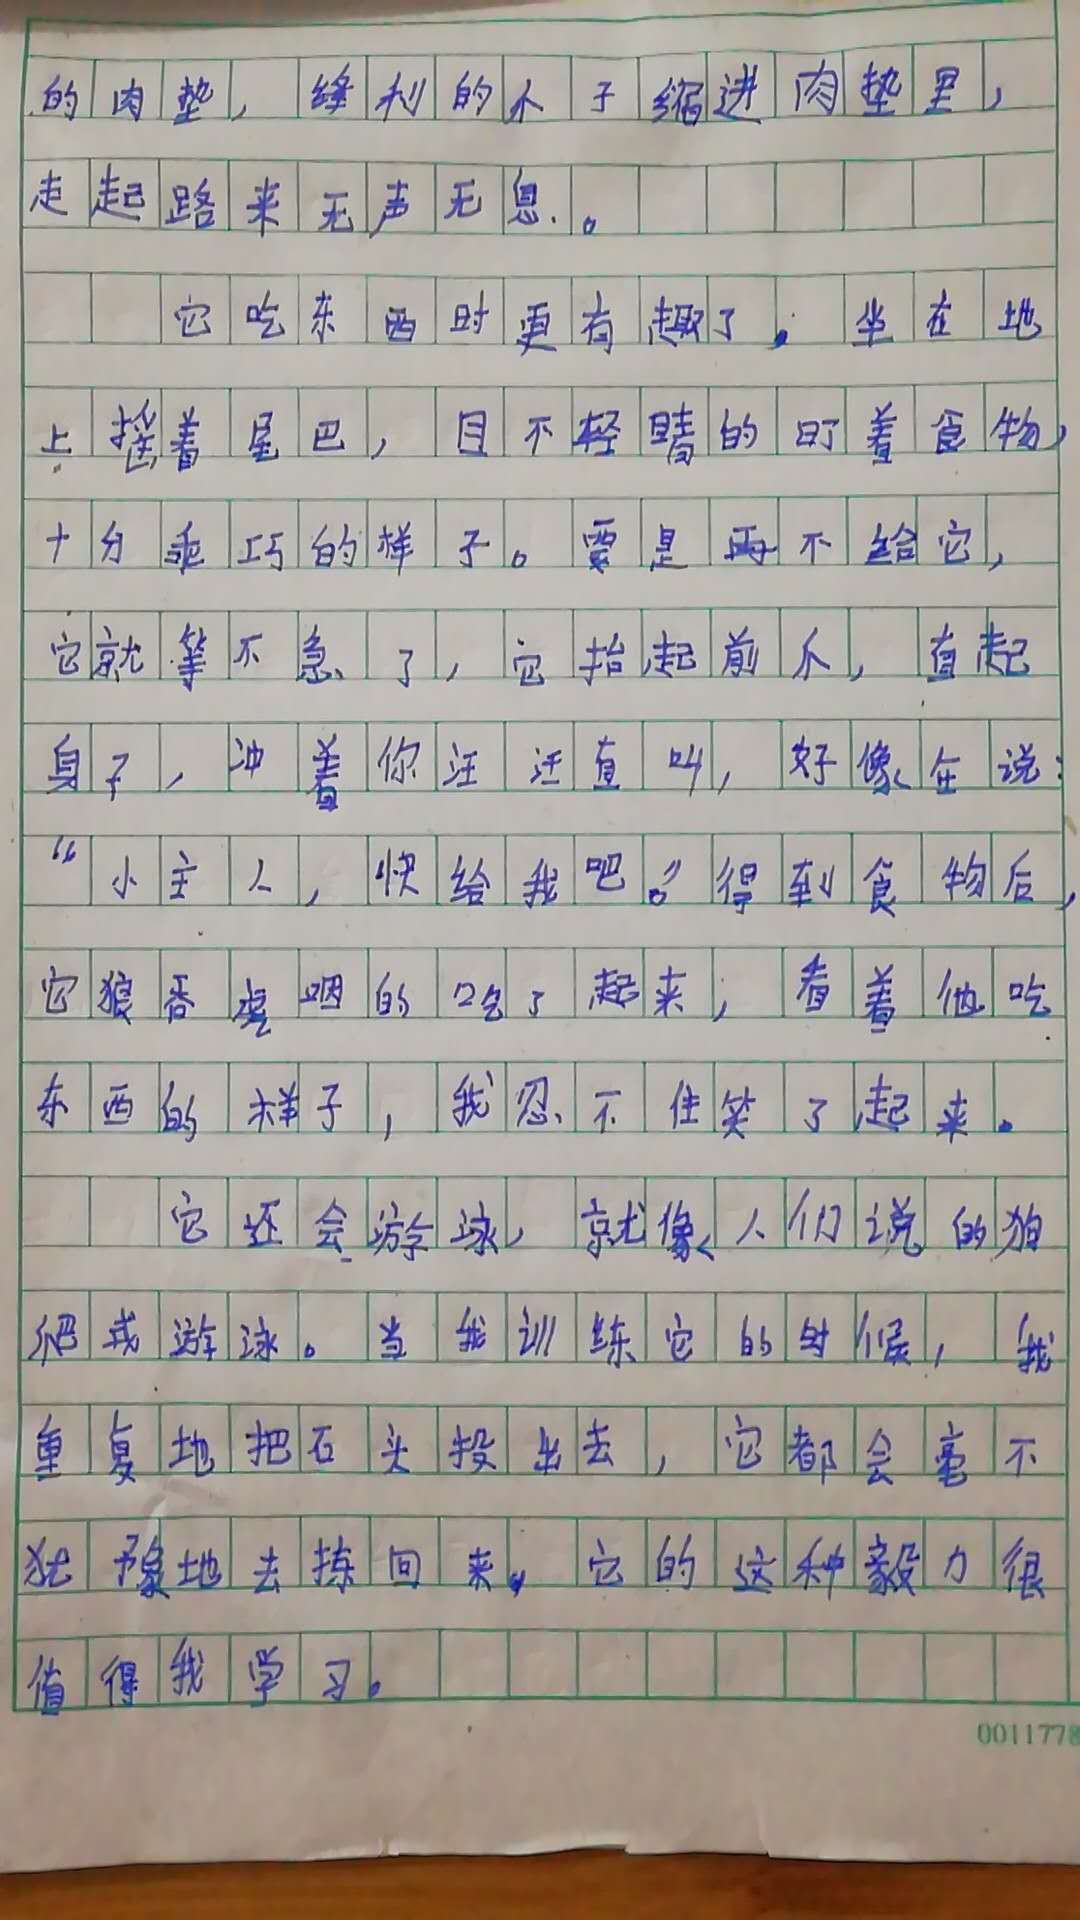 的肉垫，缝利的爪子缩进肉垫里，
走起路来无声无息。
它吃东西时更有趣了。坐在地
上摇着尾巴，目不轻睛的盯着食物，
十分乖巧的样子。要是再不给它，
它就等不急了，它抬起前爪，直起
身子，冲着你汪汪直叫，好像在说：
“小主人，快给我吧。”得到食物后，
它狼吞虎咽的吃了起来，看着他吃
东西的样子，我忍不住笑了起来。
它还会游泳，就像人们说的狗
爬式游泳。当我训练它的时候，我
重复地把石头投出去，它都会毫不
犹豫地去拣回来。它的这种毅力很
值得我学习。
0011778